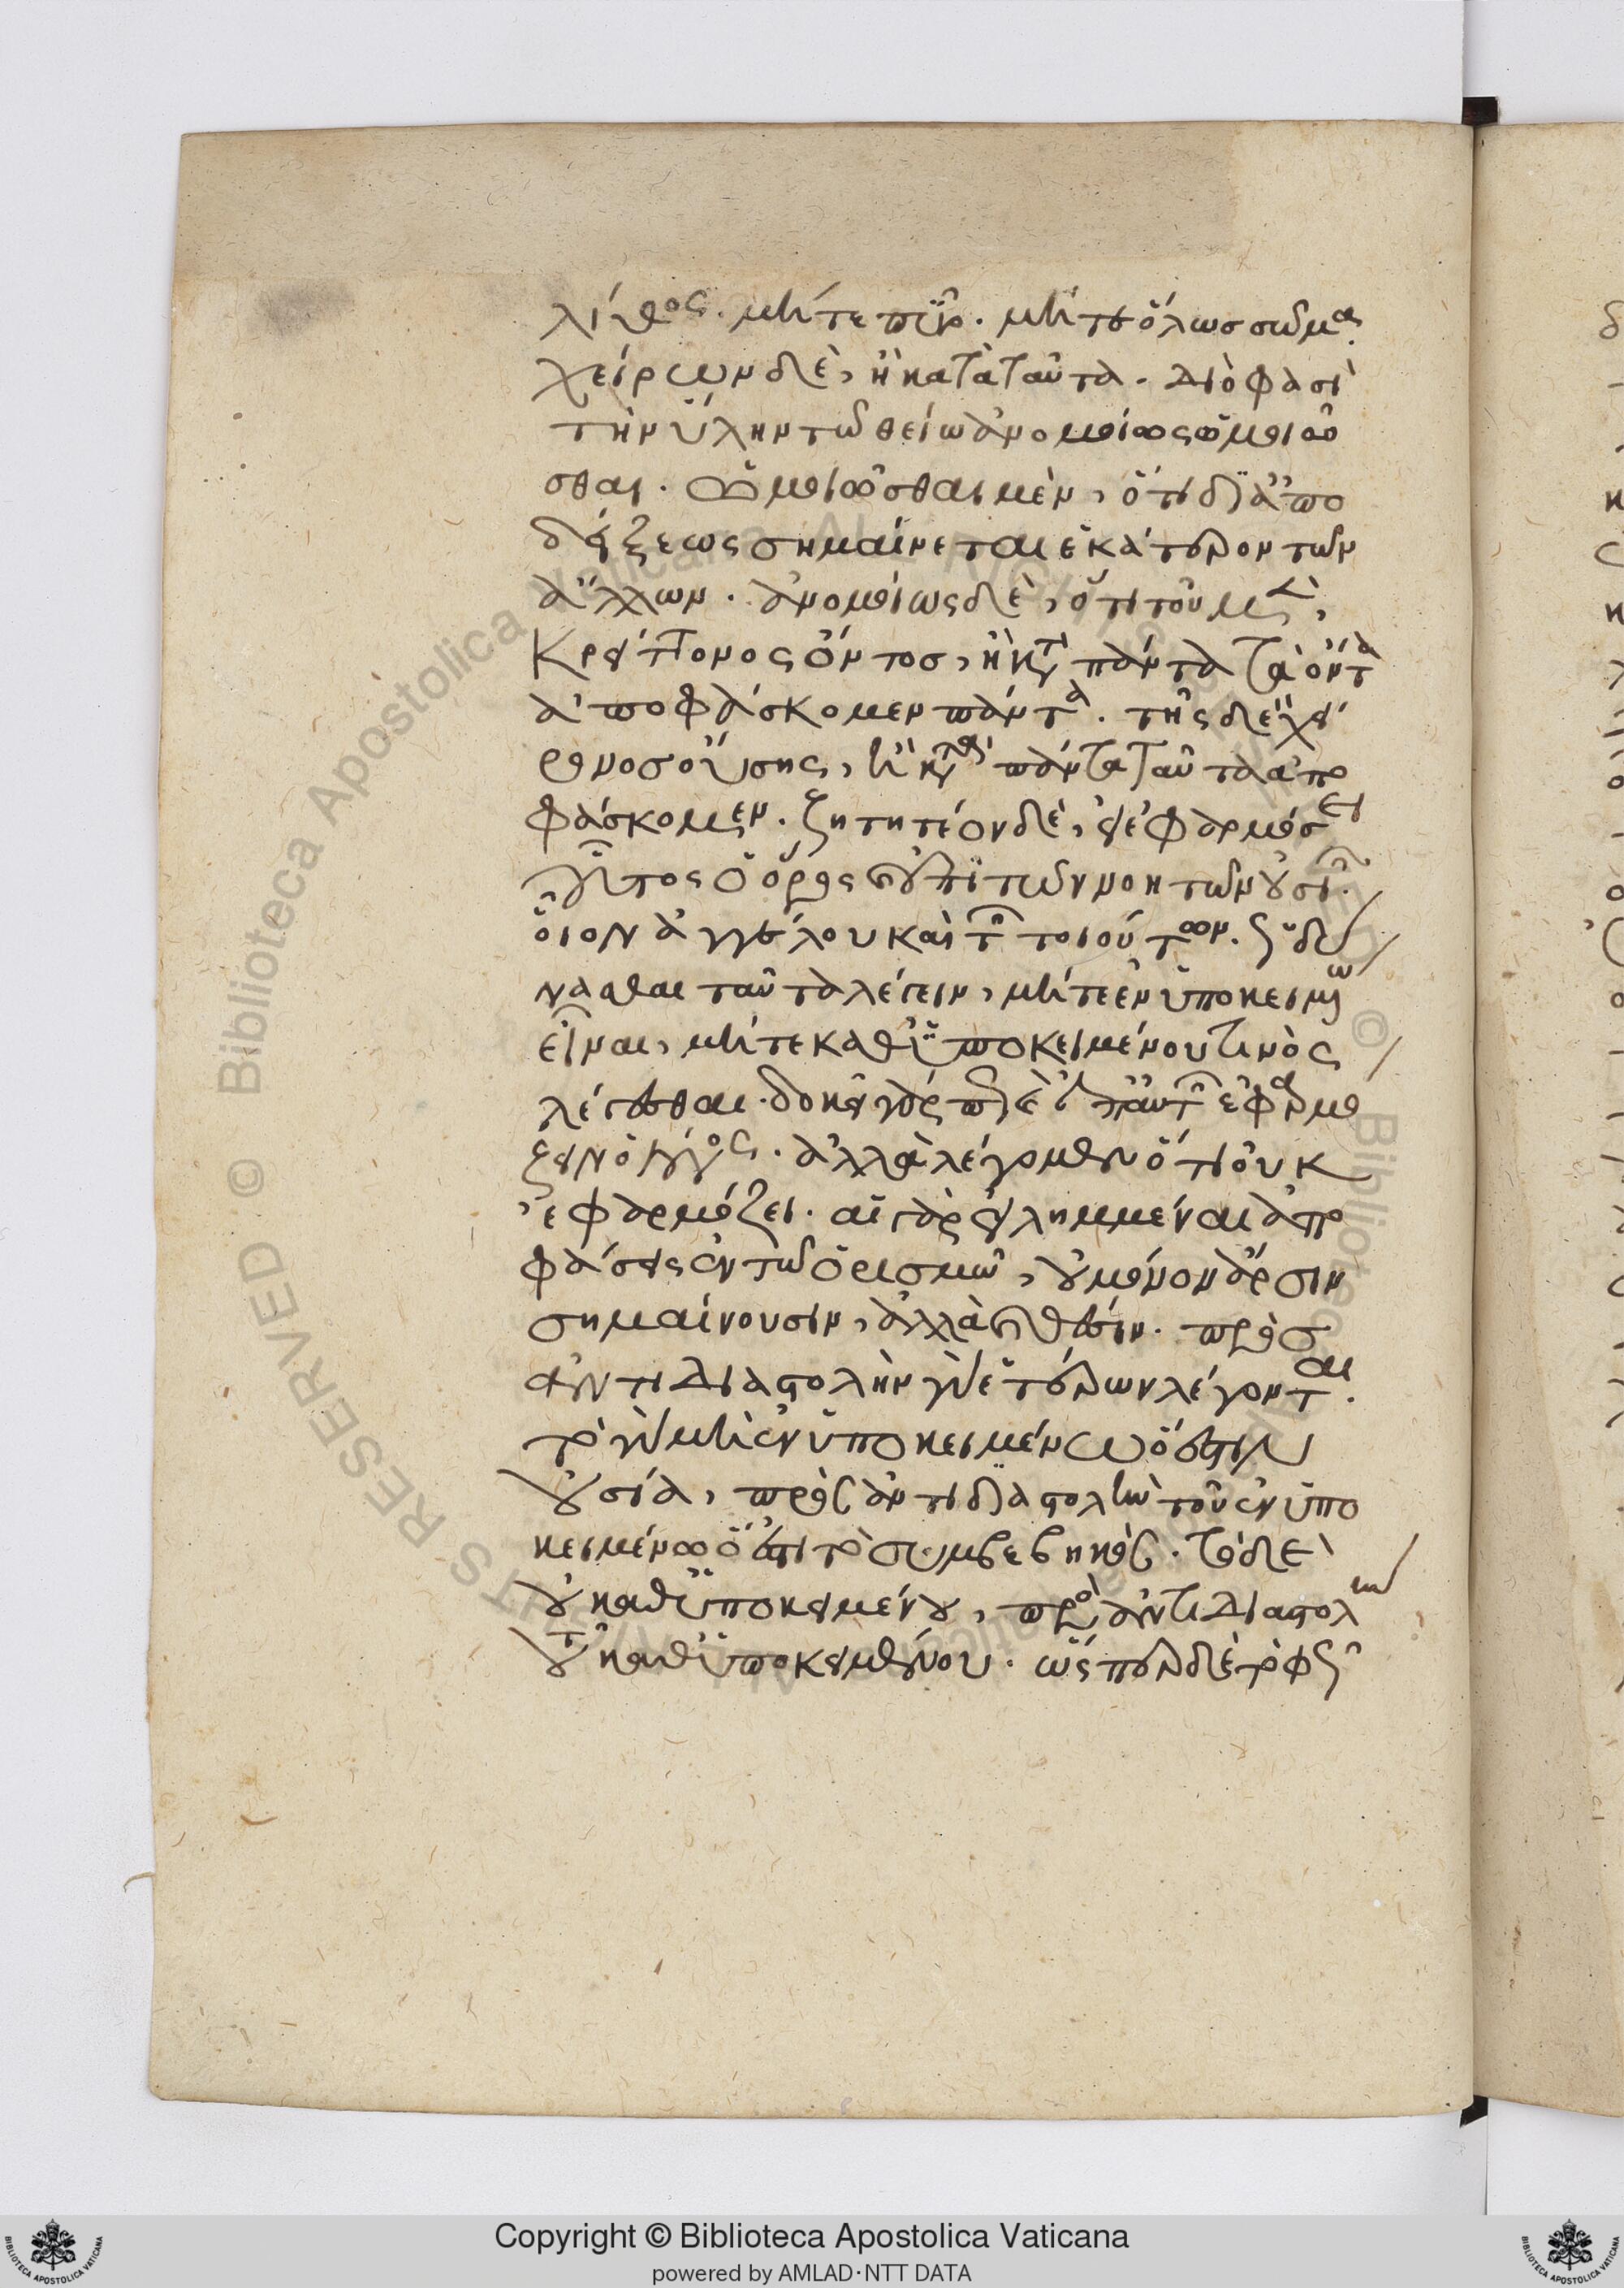 λίθος. μήτε πῦρ. μήτε ὅλως σῶμα.
χείρων δὲ, ἢ κατὰ ταῦτα. διό φασι
τὴν ὕλην τῶ θείω ἀνομοίως ὁμοιοῦ
σθαι. ὁμοιοῦσθαι μὲν, ὅτι δι' ἀπο
δείξεως σημαίνεται ἑκάτερον τῶν
ἄλλων. ἀνομοίως δὲ, ὅτι τοῦ μὲν,
κρείττονος ὄντος, ἢ κατὰ πάντα τὰ ὄντα
ἀποφάσκομεν πάντα. τῆς δὲ χεί
ρονος οὔσης, ἢ κατὰ πάντα ταῦτα ἀπο
φάσκομεν. ζητητέον δὲ, εἰ ἐφαρμόσει
οὗτος ὁ ὅρος καὶ ἐπὶ τῶν νοητῶν οὐσιῶν.
οἷον ἀγγέλου καὶ τῶν τοιούτων.
νασθαι ταῦτα λέγειν, μήτε ἐν ὑποκειμένω
εἶναι, μήτε καθ' ὑποκειμένου τινὸς
λέγεσθαι. δοκεῖ γὰρ ἐφαρμό
ζειν ὁ λόγος. ἀλλὰ λέγομεν ὅτι οὐκ
ἐφαρμόζει. αἱ γὰρ εἰλημμέναι ἀπο
φάσεις ἐν τῶ ὁρισμῶ, οὐ μόνον ἄρσιν
σημαίνουσιν, ἀλλὰ καὶ θέσιν. πρὸς
ἀντιδιαστολὴν γὰρ ἑτέρων λέγονται.
τὸ γὰρ μὴ ἐν ὑποκειμένω ὅ ἐστιν
οὐσία, πρὸς ἀντιδιαστολὴν τοῦ ἐν ὑπο
κειμένω ὅ ἐστι τὸ συμβεβηκός. τὸ δὲ
οὐ καθ' ὑποκειμένου, πρὸς ἀντιδιαστολὴν
τοῦ καθ' ὑποκειμένου. ὥσπερ δὲ τὸ